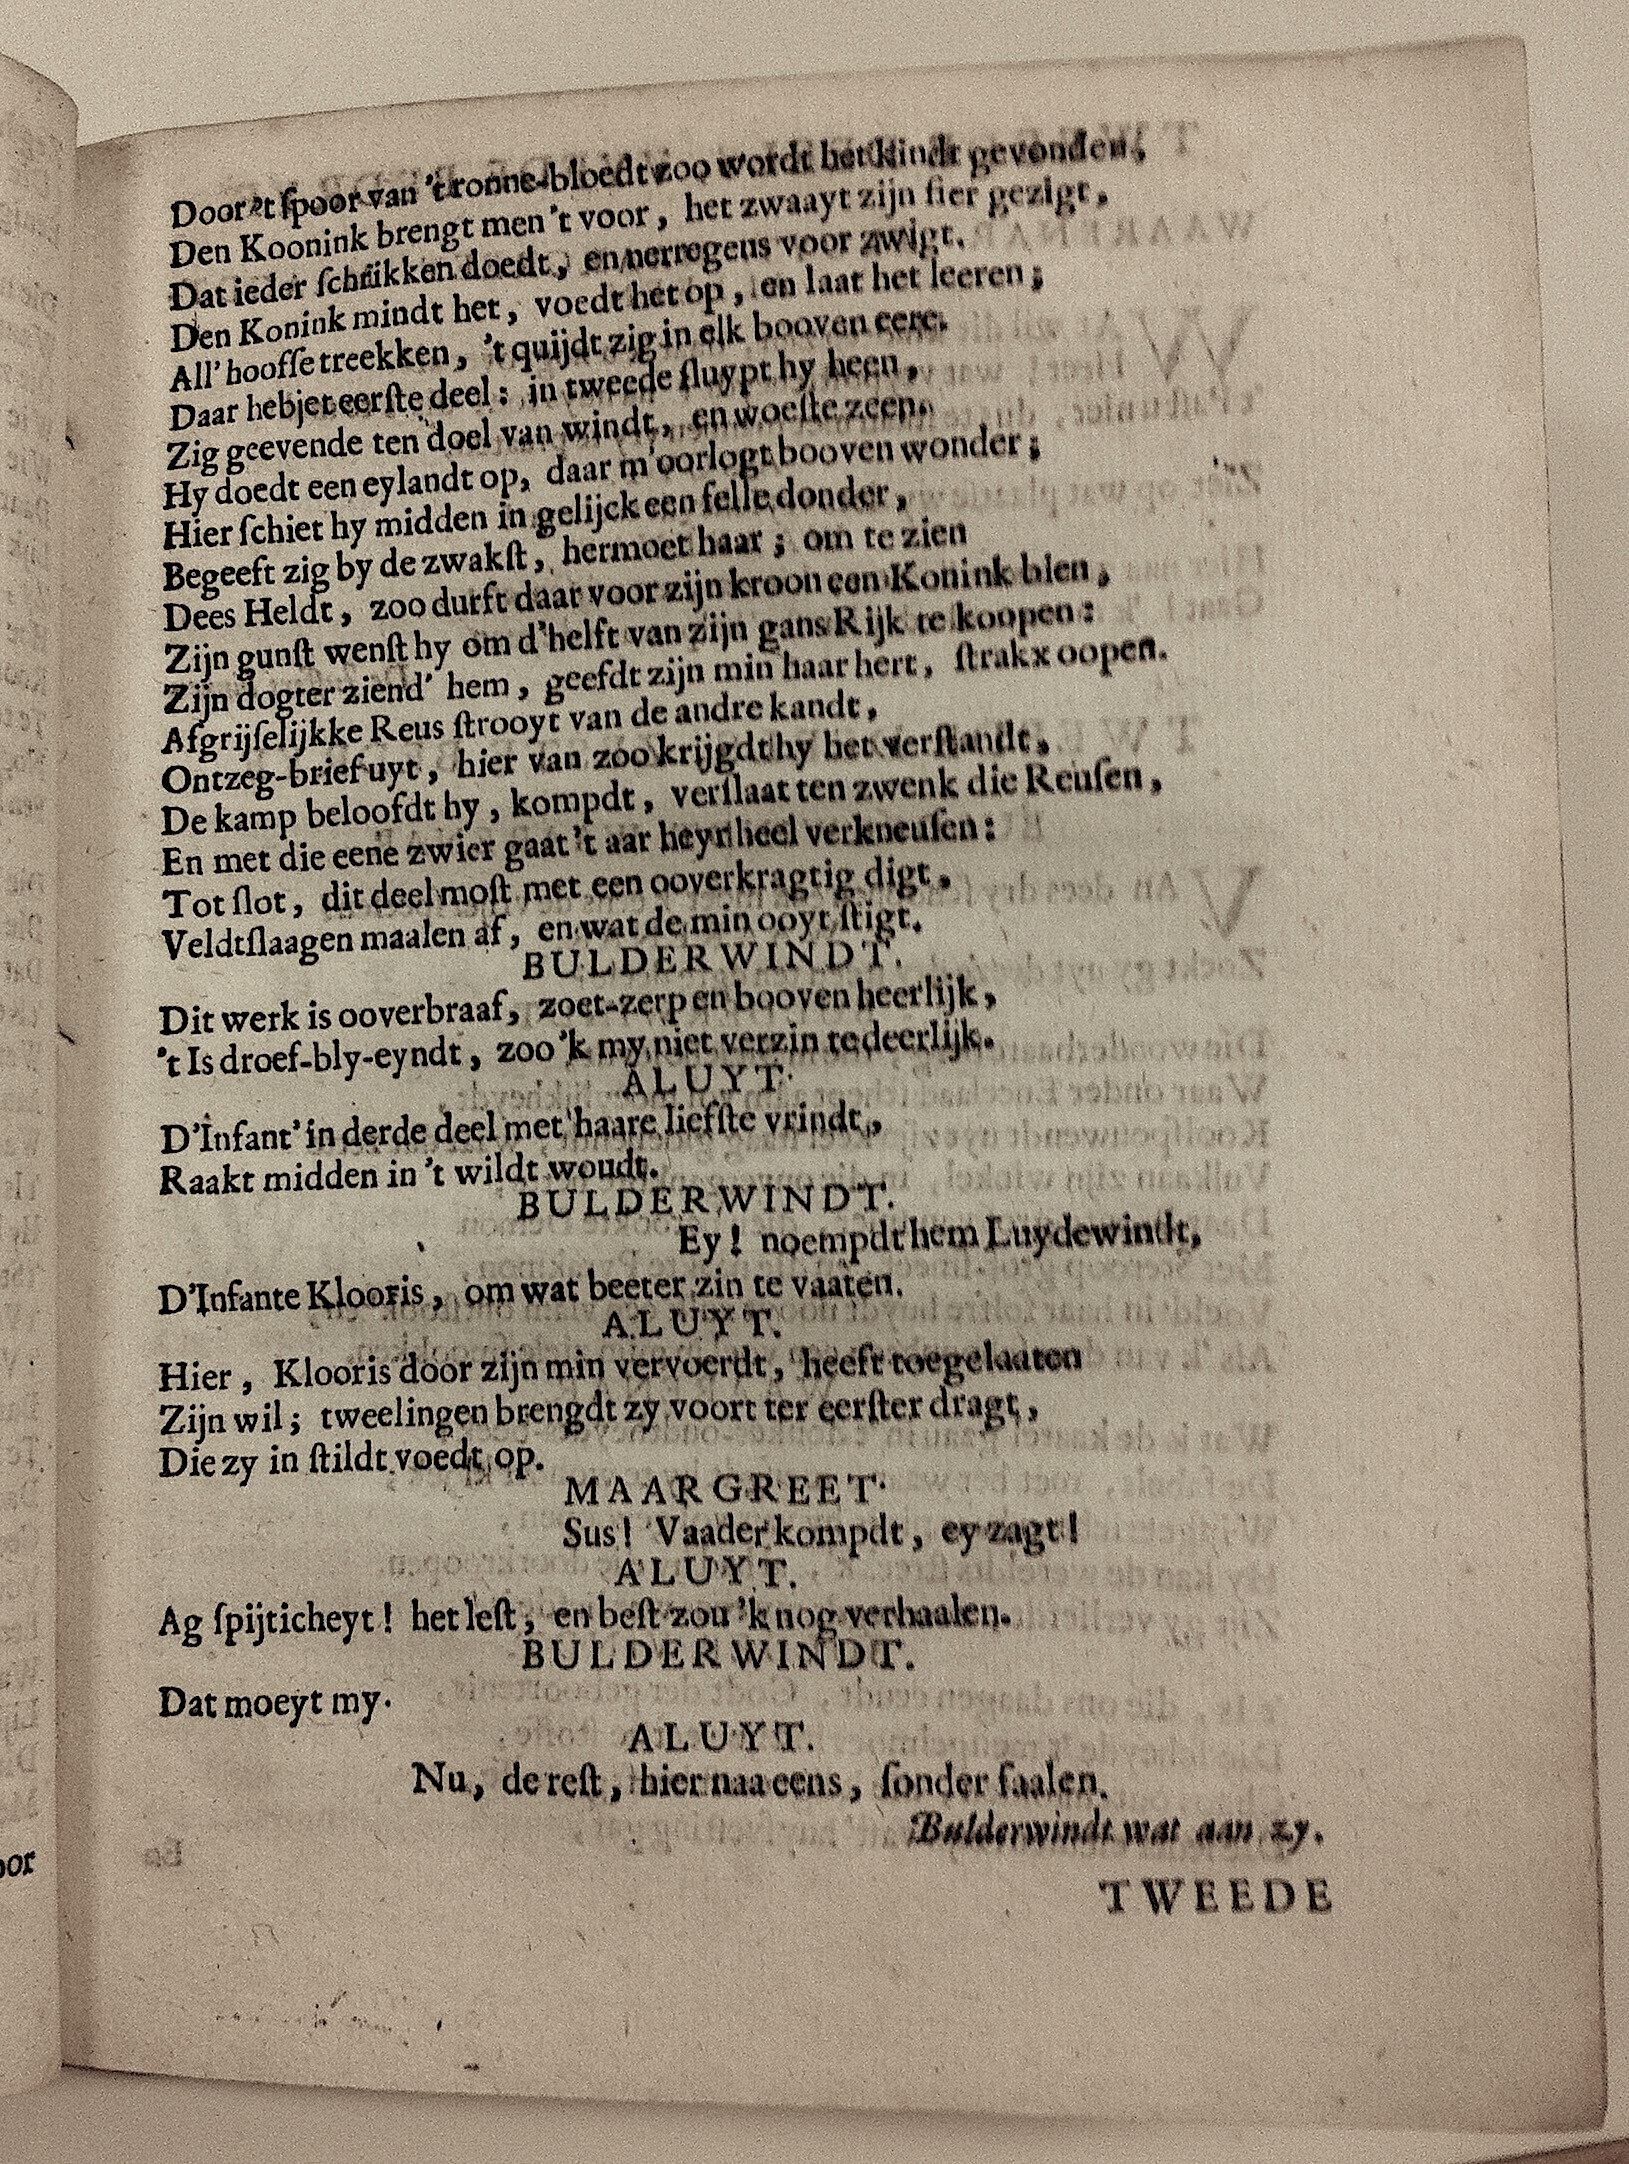 Door't ſpoor van 't ronne-bloedt zoo wordt het kindt gevonden,
Den Koonink brengt men 't voor, het zwaayt zijn fier gezigt,
Dat ieder ſchrikken doedt, en nerregens voor zwigt.
Den Konink mindt het, voedt het op, en laat het leeren;
All' hoofſe treekken, 't quijdt zig in elk booven eere.
Daar hebjet eerſte deel: in tweede ſluypt hy heen,
Zig geevende ten doel van windt, en woeſte zeen.
Hy doedt een eylandt op, daar m'oorlogt booven wonder;
Hier ſchiet hy midden in gelijck een felle donder,
Begeeft zig by de zwakſt, hermoet haar; om te zien
Dees Heldt, zoo durft daar voor zijn kroon een Konink bien,
Zijn gunſt wenſt hy om d'helft van zijn gans Rijk te koopen:
Zijn dogter ziend' hem, geefdt zijn min haar hert, ſtrakx oopen.
Afgrijſelijkke Reus ſtrooyt van de andre kandt,
Ontzeg-brief uyt, hier van zoo krijgdt hy het verſtandt,
De kamp beloofdt hy, kompdt, verſlaat ten zwenk die Reuſen,
En met die eene zwier gaat 't aar heyr heel verkneuſen:
Tot ſlot, dit deel moſt met een ooverkragtig digt,
Veldtſlaagen maalen af, en wat de min ooyt ſtigt.
BULDERWINDT.
Dit werk is ooverbraaf, zoet-zerp en booven heerlijk,
't Is droef-bly-eyndt, zoo 'k my niet verzin te deerlijk.
ALUYT.
D'Infant' in derde deel met haare liefſte vrindt,
Raakt midden in 't wildt woudt.
BULDERWINDT.
Ey! noempdt hem Luydewindt,
D'Infante Klooris, om wat beeter zin te vaaten.
ALUYT.
Hier, Klooris door zijn min vervoerdt, heeft toegelaaten
Zijn wil; tweelingen brengdt zy voort ter eerſter dragt,
Die zy in ſtildt voedt op.
MAARGREET.
Sus! Vaader kompdt, ey zagt!
ALUYT.
Ag ſpijticheyt! het leſt, en beſt zou 'k nog verhaalen.
BULDERWINDT.
Dat moeyt my.
ALUYT.
Nu, de reſt, hier naa eens, ſonder faalen.
Bulderwindt wat aan zy.
TWEEDE
oor